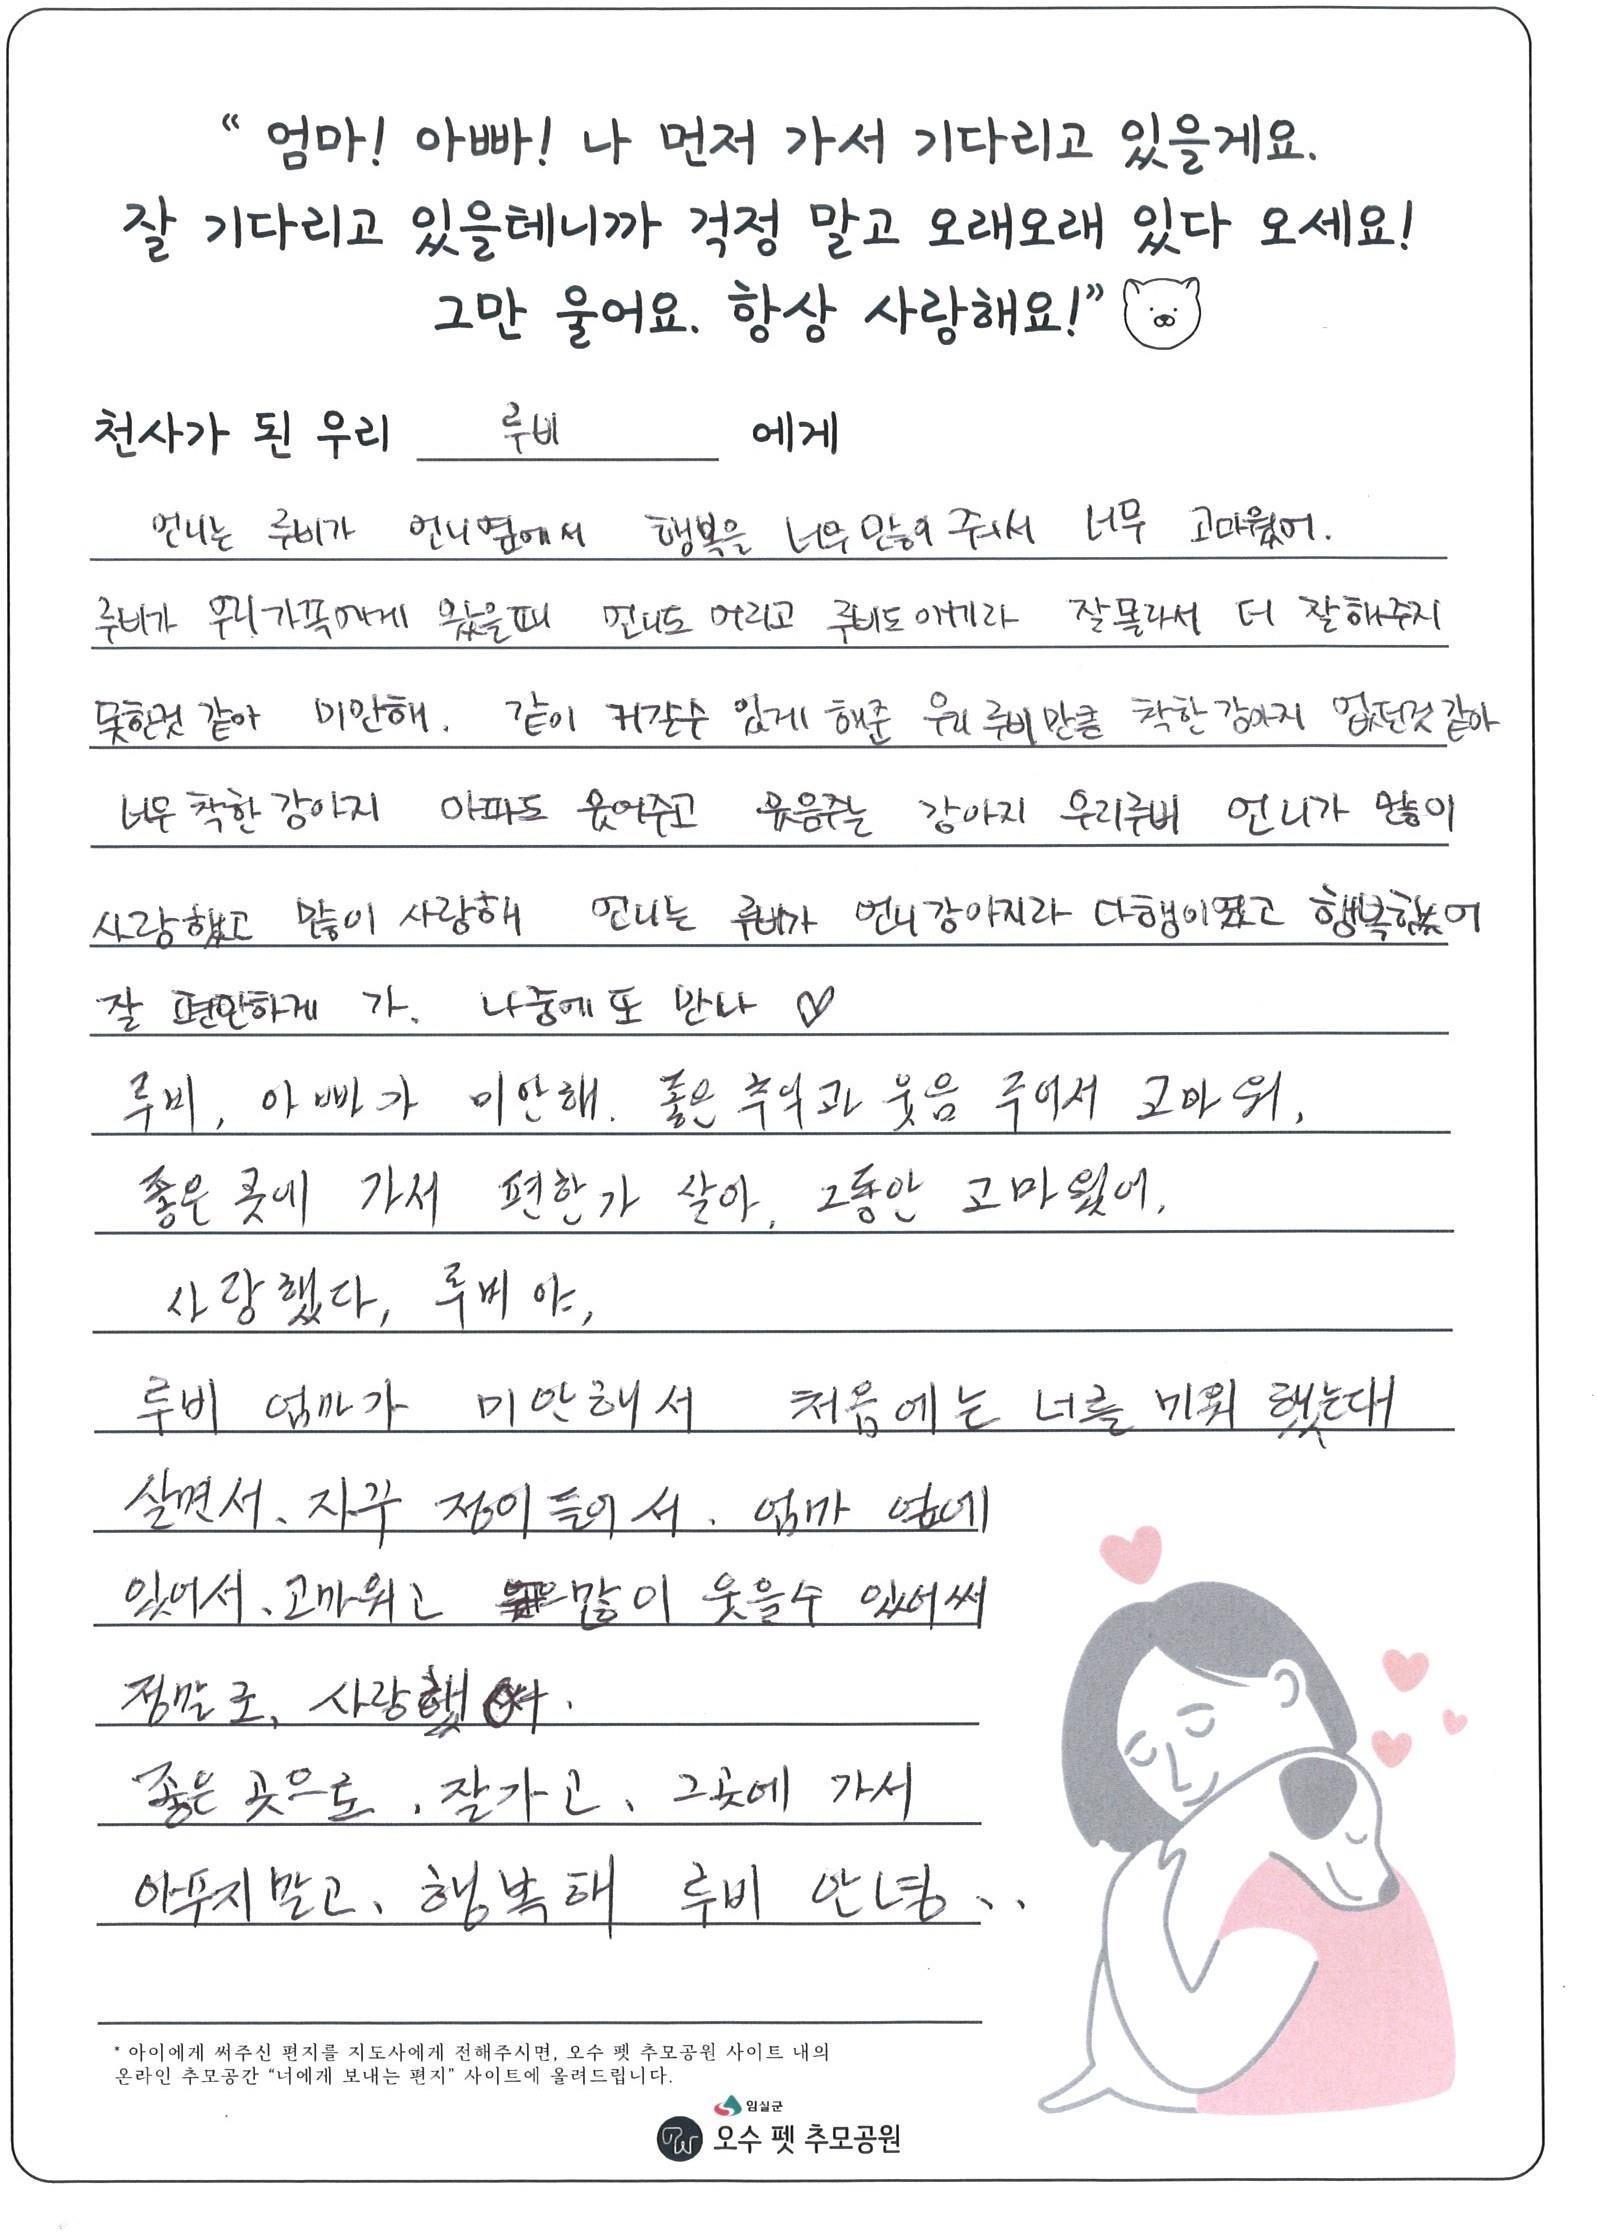 “ 엄마! 아빠! 나 먼저 가서 기다리고 있을게요.
잘 기다리고 있을테니까 걱정 말고 오래오래 있다 오세요!
그만 울어요. 항상 사랑해요!”
천사가 된 우리 루비 에게
언니는 루비가 언니옆에서 행복을 너무 많이 줘서 너무 고마웠어.
루비가 우리가족에게 왔을때 언니도 어리고 루비도 애기라 잘몰라서 더 잘해주지
못한것 같아 미안해. 같이 커갈수 있게 해준 우리 루비만큼 착한강아지 없던것같아
너무 착한 강아지 아파도 웃어주고 웃음주는 강아지 우리루비 언니가 많이
사랑했고 많이 사랑해 언니는 루비가 언니강아지라 다행이였고 행복했어
잘 편안하게 가. 나중에 또 만나 ♡
루비, 아빠가 미안해. 좋은 추억과 웃음 주어서 고마워,
좋은 곳에 가서 편한가 살아, 그동안 고마웠어,
사랑했다, 루비야,
루비 엄마가 미안해서 처음에는 너를 미워 했는대
살면서, 자꾸 정이 들어서. 엄마 옆에
있어서, 고마워고 많이 웃을수 있어써
정말로, 사랑했어.
좋은 곳으로, 잘가고, 그곳에 가서
아푸지말고, 행복해 루비 안녕..
* 아이에게 써주신 편지를 지도사에게 전해주시면, 오수 펫 추모공원 사이트 내의
온라인 추모공간 “너에게 보내는 편지” 사이트에 올려드립니다.
임실군
오수 펫 추모공원